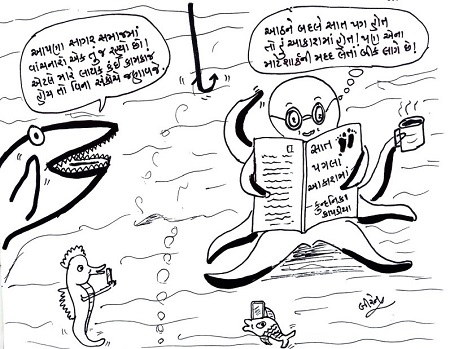 આપણા સાગર સમાજમાં
વાંચનારો એક તું જ રહ્યો છો!
એટલે મારે લાયક કંઈ કામકાજ
હોય તો વિના સંકોચે જણાવજે.
આઠને બદલે સાત પગ હોત
તો હું આકાશમાં હોત! પણ એના
માટે શાર્કની મદદ લેતાં બીક લાગે છે!
સાત
પગલાં
આકાશમાં
કુન્દનિકા
કાપડીઆ